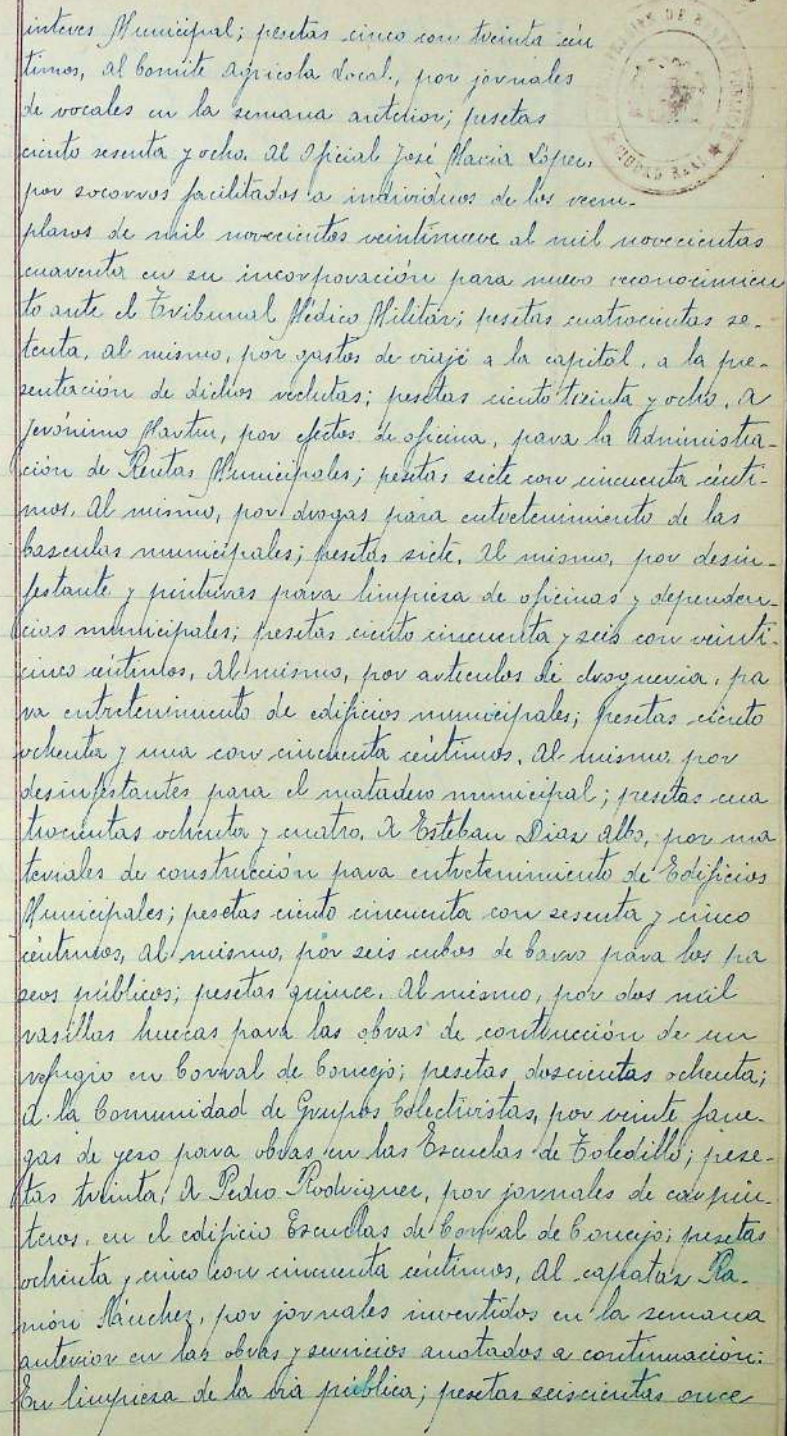 interes Municipal; pesetas cinco con treinta cén
timos, al Comite Agricola Local, por jornales
de vocales en la semana anterior; pesetas
ciento sesenta y ocho. Al Oficial José Maria López,
por socorros facilitados a individuos de los reem-
plasos de mil novecientos veintinueve al mil novecientas
cuarenta en su incorporación para nuevo reconocimien
to ante el Tribunal Médico Militar; pesetas cuatrocientas se-
tenta, al mismo, por gastos de viaje a la capital, a la pre-
sentación de dichos reclutas; pesetas ciento treinta y ocho, A
Jerónimo Martin, por efectos de oficina, para la Administra-
ción de Rentas Municipales; pesetas siete con cincuenta cénti-
mos. Al mismo, por drogas para entretenimiento de las
basculas municipales; pesetas siete. Al mismo, por desin-
festante y pinturas para limpiesa de oficinas y dependen-
cias municipales; pesetas ciento cincuenta y seis con veinti-
cinco céntimos, Al mismo, por articulos de drogueria, pa
ra entretenimiento de edificios municipales; pesetas ciento
ochenta y una con cincuenta céntimos. Al mismo, por
desinfestantes para el matadero municipal; pesetas cua
trocientas ochenta y cuatro. A Esteban Diaz Albo, por ma
teriales de construcción para entretenimiento de Edificios
Municipales; pesetas ciento cincuenta con sesenta y cinco
céntimos, Al mismo, por seis cubos de barro para los pa
seos públicos; pesetas quince. Al mismo, por dos mil
rasillas huecas para las obras de contrucción de un
refugio en Corral de Concejo; pesetas doscientas ochenta;
A la Comunidad de Grupos Colectivistas, por veinte fane-
gas de yeso para obras en las Escuelas de Toledillo; pese-
tas treinta, A Pedro Rodriguez, por jornales de carpin-
teros, en el edificio Escuelas de Corral de Concejo; pesetas
ochenta y cinco con cincuenta céntimos, Al capataz Ra-
món Sánchez, por jornales invertidos en la semana
anterior en las obras y servicios anotados a continuación:
En limpiesa de la via pública; pesetas seiscientas once
CIUDAD REAL